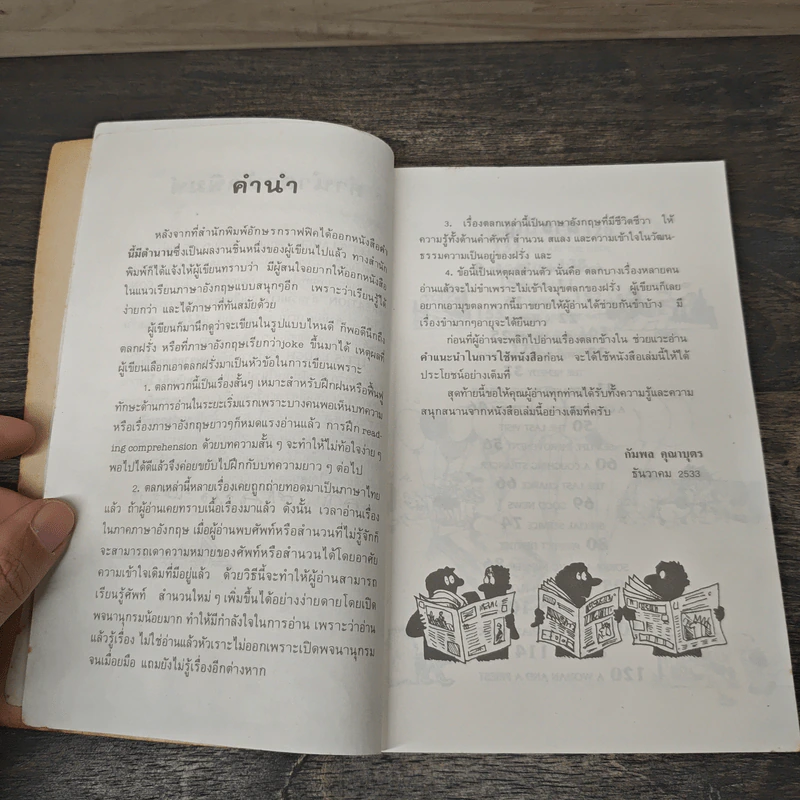 คำนำ
หลังจากที่สำนักพิมพ์อักษรกราฟฟิคได้ออกหนังสือคำ
นี้มีตำนานซึ่งเป็นผลงานชิ้นหนึ่งของผู้เขียนไปแล้ว ทางสำนัก
พิมพ์ก็ได้แจ้งให้ผู้เขียนทราบว่า มีผู้สนใจอยากให้ออกหนังสือ
ในแนวเรียนภาษาอังกฤษแบบสนุกๆอีก เพราะว่าเรียนรู้ได้
ง่ายกว่า และได้ภาษาที่ทันสมัยด้วย
ผู้เขียนก็มานึกดูว่าจะเขียนในรูปแบบไหนดี ก็พอดีนึกถึง
ตลกฝรั่ง หรือที่ภาษาอังกฤษเรียกว่าjoke ขึ้นมาได้ เหตุผลที่
ผู้เขียนเลือกเอาตลกฝรั่งมาเป็นหัวข้อในการเขียนเพราะ
1. ตลกพวกนี้เป็นเรื่องสั้นๆ เหมาะสำหรับฝึกฝนหรือฟื้นฟู
ทักษะด้านการอ่านในระยะเริ่มแรกเพราะบางคนพอเห็นบทความ
หรือเรื่องภาษาอังกฤษยาวๆก็หมดแรงอ่านแล้ว การฝึก read-
ing comprehension ด้วยบทความสั้น ๆ จะทำให้ไม่ท้อใจง่าย ๆ
พอไปได้ดีแล้วจึงค่อยขยับไปฝึกกับบทความยาว ๆ ต่อไป
2. ตลกเหล่านี้หลายเรื่องเคยถูกถ่ายทอดมาเป็นภาษาไทย
แล้ว ถ้าผู้อ่านเคยทราบเนื้อเรื่องมาแล้ว ดังนั้น เวลาอ่านเรื่อง
ในภาคภาษาอังกฤษ เมื่อผู้อ่านพบศัพท์หรือสำนวนที่ไม่รู้จักก็
จะสามารถเดาความหมายของศัพท์หรือสำนวนได้โดยอาศัย
ความเข้าใจเดิมที่มีอยู่แล้ว ด้วยวิธีนี้จะทำให้ผู้อ่านสามารถ
เรียนรู้ศัพท์ สำนวนใหม่ๆเพิ่มขึ้นได้อย่างง่ายดายโดยเปิด
พจนานุกรมน้อยมาก ทำให้มีกำลังใจในการอ่าน เพราะว่าอ่าน
แล้วรู้เรื่อง ไม่ใช่อ่านแล้วหัวเราะไม่ออกเพราะเปิดพจนานุกรม
จนเมื่อยมือ แถมยังไม่รู้เรื่องอีกต่างหาก
3. เรื่องตลกเหล่านี้เป็นภาษาอังกฤษที่มีชีวิตชีวา ให้
ความรู้ทั้งด้านคำศัพท์ สำนวน สแลง และความเข้าใจในวัฒน-
ธรรมความเป็นอยู่ของฝรั่ง และ
4. ข้อนี้เป็นเหตุผลส่วนตัว นั่นคือ ตลกบางเรื่องหลายคน
อ่านแล้วจะไม่ขำเพราะไม่เข้าใจมุขตลกของฝรั่ง ผู้เขียนก็เลย
อยากเอามุขตลกพวกนี้มาขยายให้ผู้อ่านได้ช่วยกันขำบ้าง มี
เรื่องขำมากๆอายุจะได้ยืนยาว
ก่อนที่ผู้อ่านจะพลิกไปอ่านเรื่องตลกข้างใน ช่วยแวะอ่าน
คำแนะนำในการใช้หนังสือก่อน จะได้ใช้หนังสือเล่มนี้ให้ได้
ประโยชน์อย่างเต็มที่
สุดท้ายนี้ขอให้คุณผู้อ่านทุกท่านได้รับทั้งความรู้และความ
สนุกสนานจากหนังสือเล่มนี้อย่างเต็มที่ครับ
กัมพล คุณาบุตร
ธันวาคม 2533